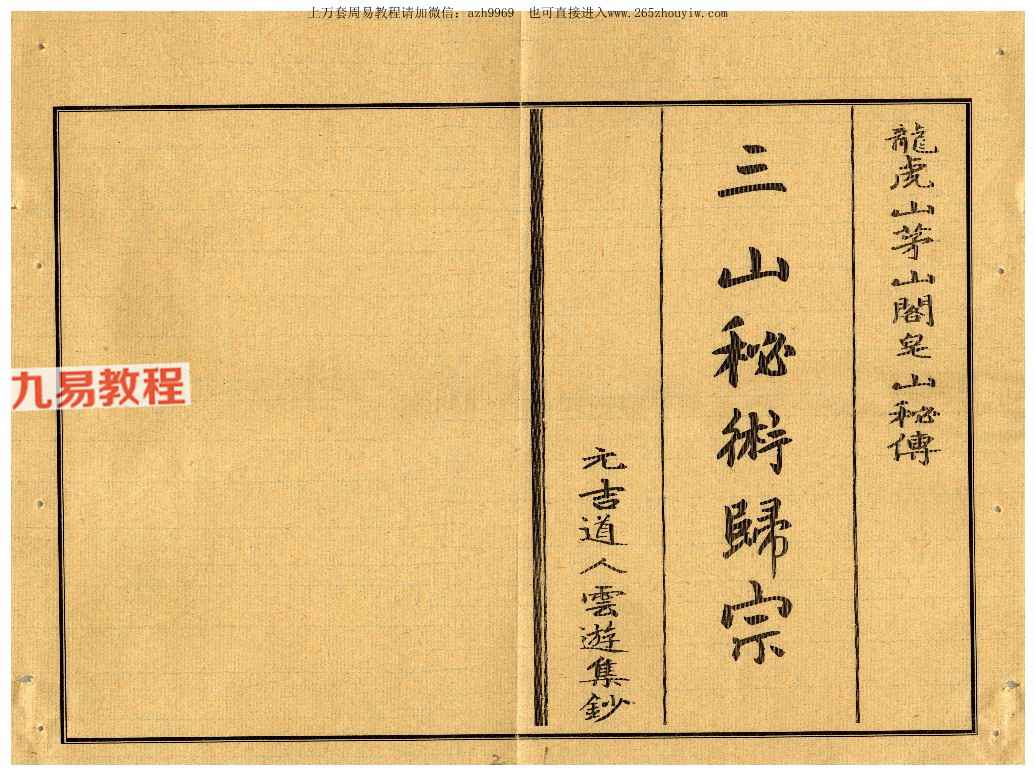 上万套周易教程请加微信：azh9969 也可直接进入www.265zhouyiw.com
龍虎山茅山閣皂山秘傳
三山秘術歸宗
元吉道人雲遊集鈔
九易教程
2